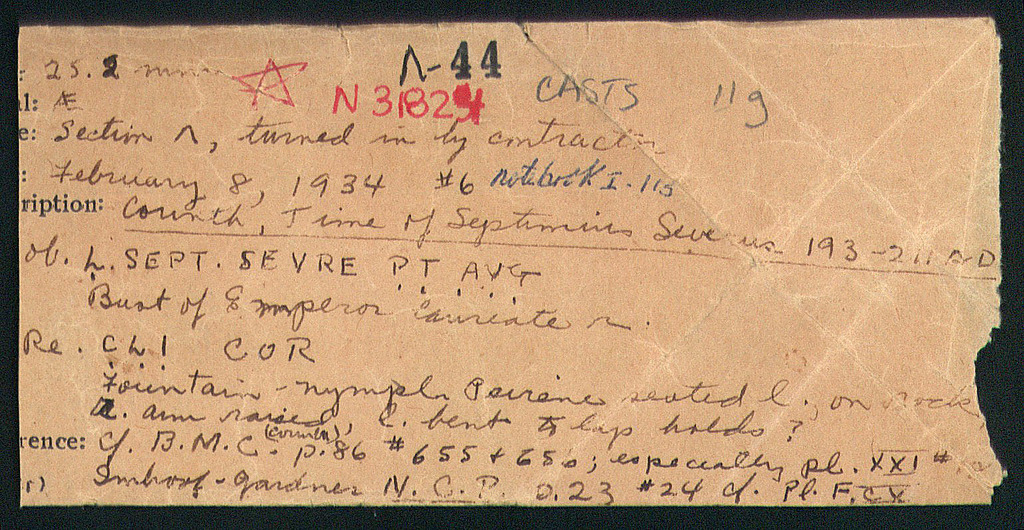 : 25.2 mm Λ-44
l: Æ N 31824 CASTS 119
e: Section Λ, turned in by contractor
: February 8, 1934 #6 notebook I-113
ription: Corinth, Time of Septimius Severus 193-211 A.D
Ob. L. SEPT. SEVRE PT AVG
Bust of Emperor laureate r.
Re. CLI COR
Fountain-nymph Peirene seated l., on rock
r. arm raised, l. bent to lap holds?
rence: Cf. B.M.C. (Corinth), p. 86 #655 + 656; especially pl. XXI #
r) Imhoof-Gardner N.C.P. p. 23 #24 cf. Pl. F. CV